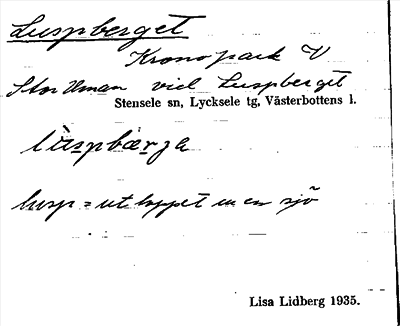 Luspberget
Kronopark V
Storuman vid Luspberget
Stensele sn, Lycksele tg, Västerbottens l.
lùspbærja
lusp = utloppet ur en sjö
Lisa Lidberg 1935.